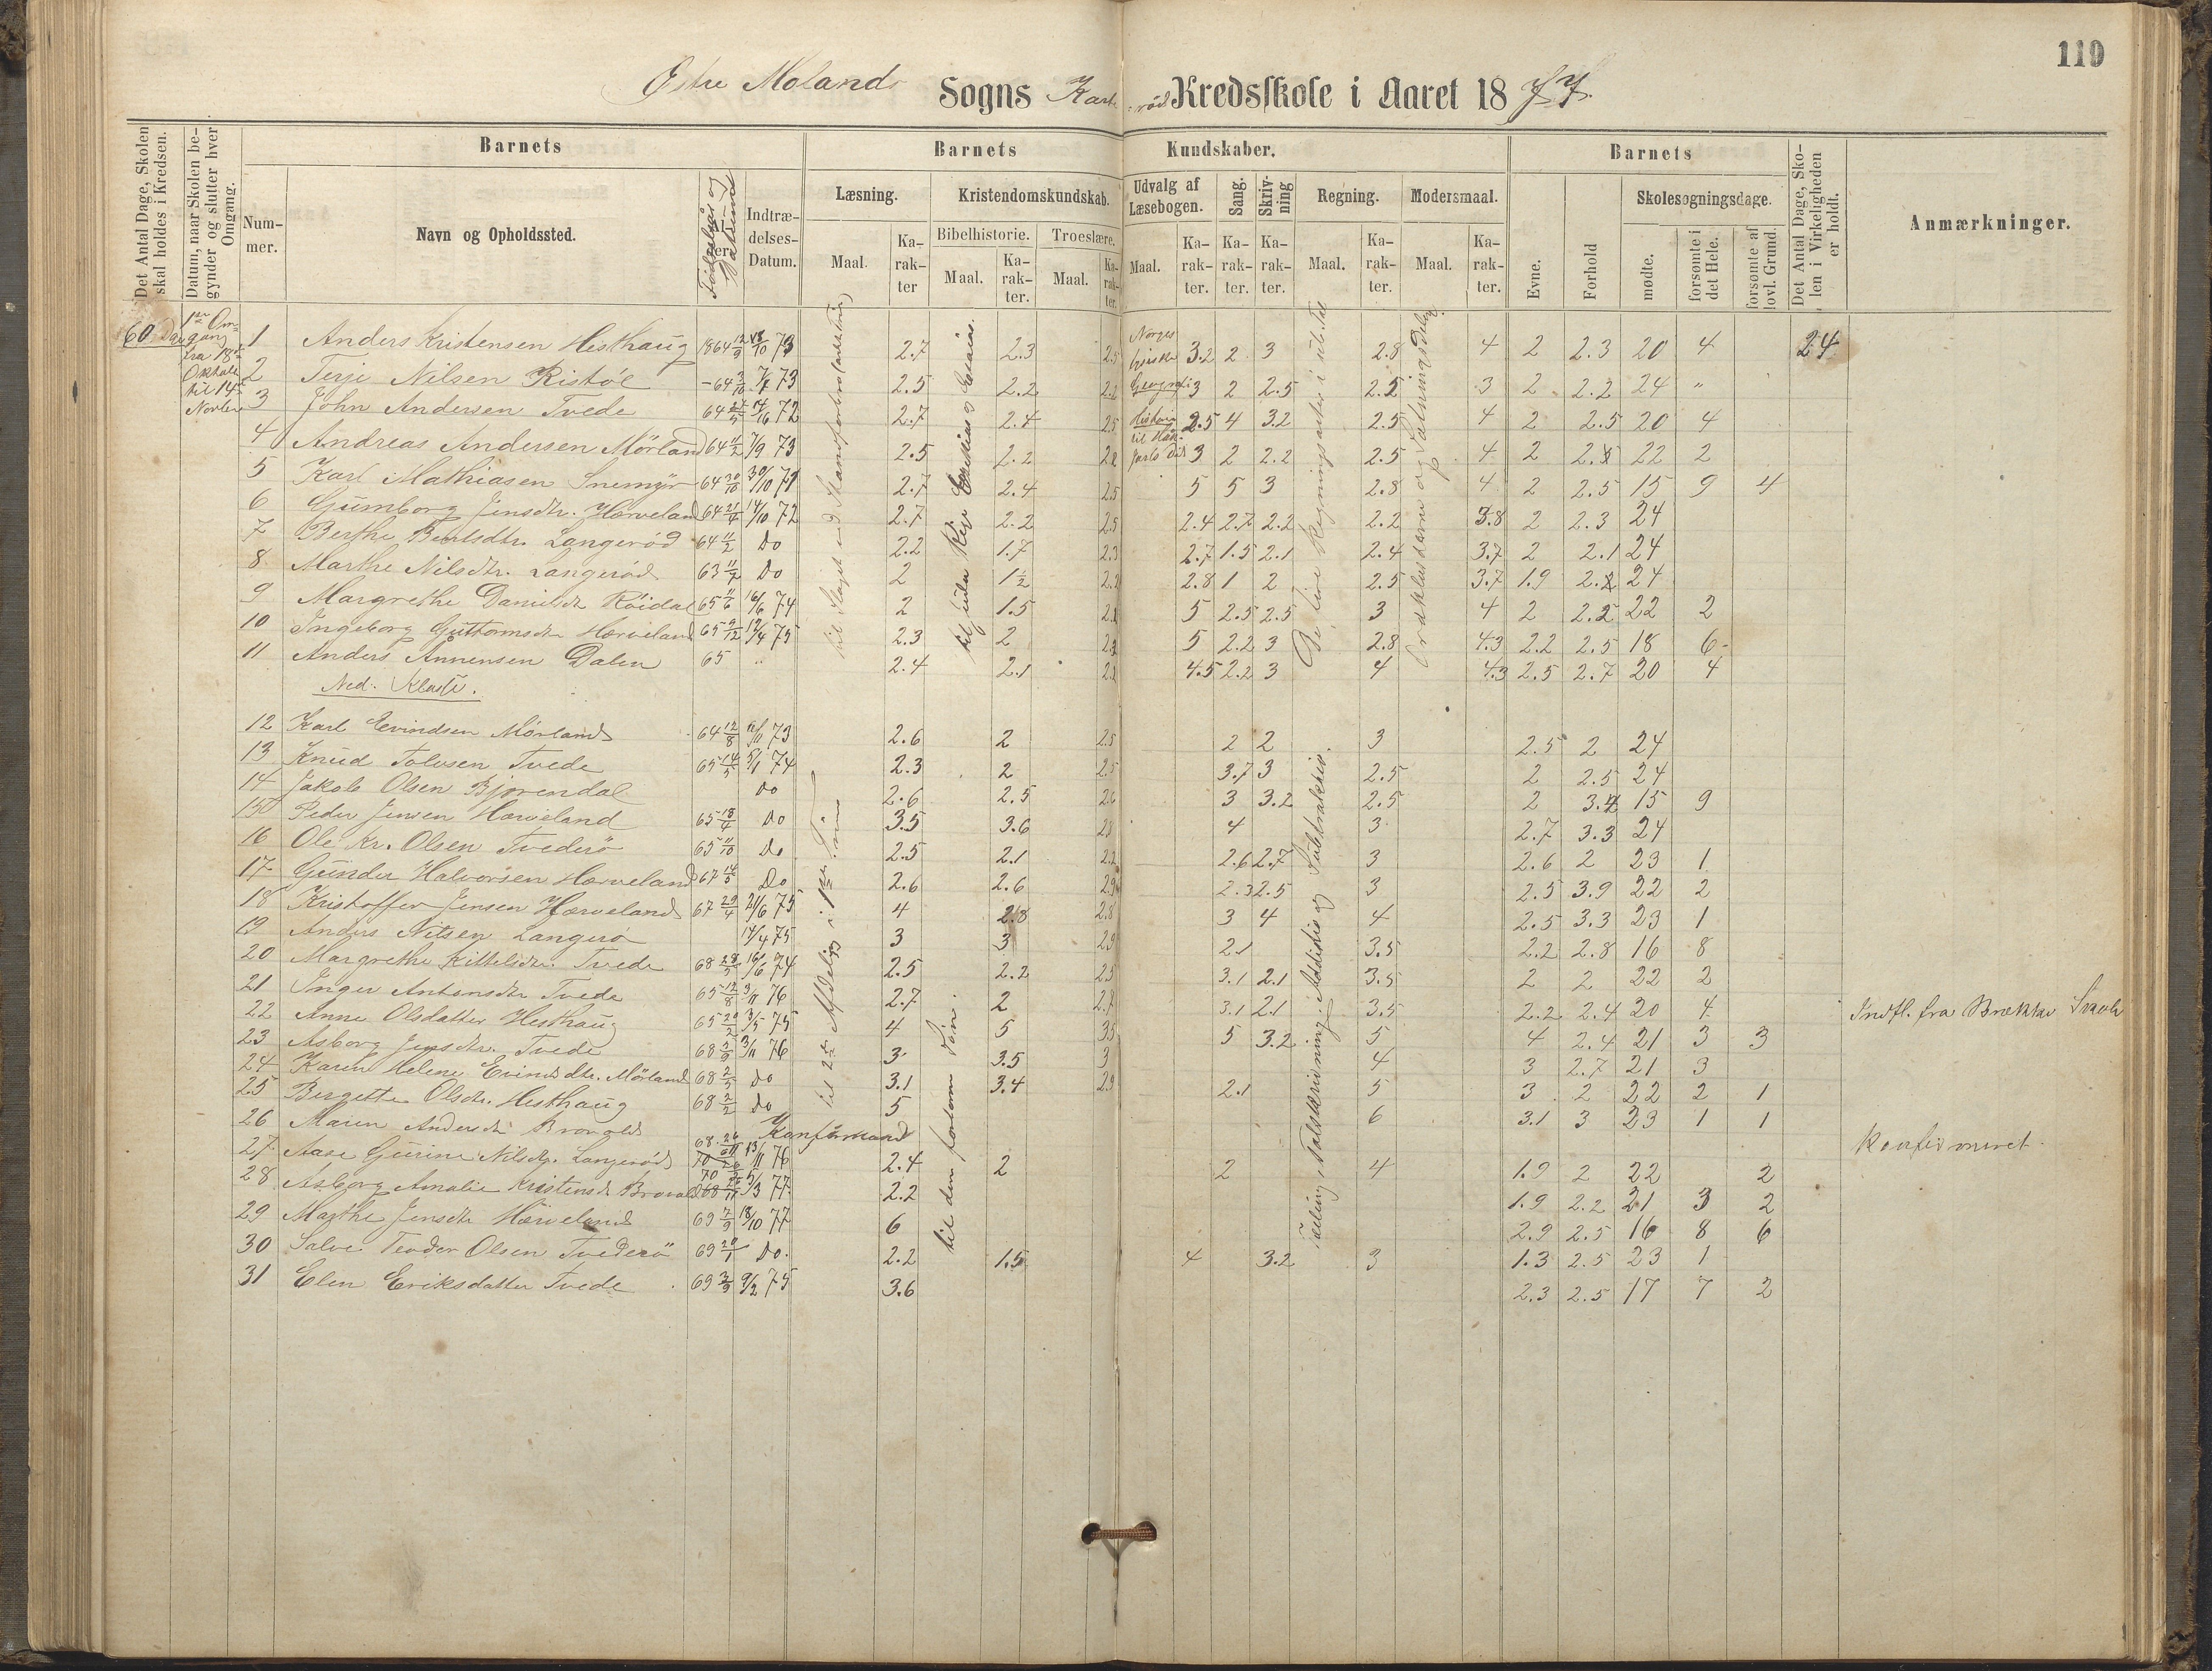 119
Østre Molands Sogns Kredsskole i Aaret 1877.
Det Antal Dage, Skolen skal holdes i Kredsen.
Datum, naar Skolen begynder og slutter hver Omgang.
Barnets
Nummer.
Navn og Opholdssted.
Indtrædelses-Datum.
Barnets Kundskaber.
Læsning.
Maal.
Karakter
Kristendomskundskab.
Bibelhistorie.
Maal.
Karakter.
Troeslære.
Maal.
Karakter.
Udvalg af Læsebogen.
Maal.
Karakter.
Sang.
Karakter.
Skrivning
Karakter.
Regning.
Maal.
Karakter.
Modersmaal.
Maal.
Karakter.
Barnets
Evne.
Forhold
Skolesøgningsdage.
mødte.
forsømte i det Hele.
forsømte af lovl. Grund.
Det Antal Dage, Skolen i Virkeligheden er holdt.
Anmærkninger.
60 Dage
1ste Omgang
fra 18de
til 14de
1 Anders Kristensen Hesthaug 1864 12/9 18/10 73 2.7 2.3 2.5 3.2 2 3 2.8 4 2 2.3 20 4 24
2 Terje Nilsen Ristøl 64 73 2.5 2.2 2.2 3 2 2.5 2.5 3 2 2.2 24 "
3 John Andersen Tvede 64 72 2.7 2.4 2.5 2.5 4 3.2 2.5 4 2 2.5 20 4
4 Andreas Andersen Mørland 64 11/2 7/9 73 2.5 2.2 2.2 3 2 2.2 2.5 4 2 22 2
5 Karl Mathiasen Snemyr 64 30/10 30/10 71 2.7 2.4 2.5 5 5 3 2.8 4 2 2.5 15 9 4
6 Gumborg Jensdtr. Hørveland 64 21/4 14/10 72 2.7 2.2 2.5 2.4 2.7 2.2 2.2 3.8 2 2.3 24
7 Berthe Langerød 64 11/2 Do 2.2 1.7 2.3 2.7 1.5 2.1 2.4 3.7 2 2.1 24
8 Marthe Nilsdtr. Langerød 63 Do 2 1½ 2.2 2.8 1 2 2.5 3.7 1.9 24
9 Margrethe Danielsdtr Røidal 65 11/6 16/6 74 2 1.5 5 2.5 2.5 3 4 2 2.2 22 2
10 Ingeborg Guttormsdtr Hørveland 65 9/12 12/4 75 2.3 2 5 2.2 3 2.8 4.3 2.2 2.5 18 6
11 Anders Annensen Dalen 65 " 2.4 2.1 4.5 2.2 3 4 4.3 2.5 2.7 20 4
Ned. Klasse.
12 Karl Evindsen Mørland 64 12/8 73 2.6 2 2.5 2 2 3 2.5 2 24
13 Knud Tolvsen Tvede 65 14/5 74 2.3 2 2.5 3.7 3 2.5 2 2.5 24
14 Jakob Olsen Bjorendal do 2.6 2.5 2.6 3 3.2 2.5 2 15 9
15 Peder Jensen Hørveland 65 18/4 do 3.5 3.6 2.8 4 3 2.7 3.3 24
16 Ole Kr. Olsen Tvederø 65 11/10 Do 2.5 2.1 2.2 2.6 2.7 3 2.6 2 23 1
17 Gunder Halvorsen Hørveland 67 Do 2.6 2.6 2.9 2.3 2.5 3 2.5 3.9 22 2
18 Kristoffer Jensen Hørveland 67 29/4 21/6 75 4 2.8 2.8 3 4 4 2.5 3.3 23 1
19 Anders Nilsen Langerø 14/4 75 3 3 2.9 2.1 3.5 2.2 2.8 16 8
20 Margrethe Kittelsdtr. Tvede 68 28/5 16/6 74 2.5 2.2 2.5 3.1 2.1 3.5 2 2 22 2
21 Inger Antonsdtr Tvede 65 12/8 3/11 76 2.7 2 2.7 3.1 2.1 3.5 2.2 2.4 20 4 Indfl. fra
22 Anne Olsdatter Hesthaug 65 20/2 3/5 75 4 5 3.5 5 3.2 5 4 2.4 21 3 3
23 Asborg Jensdtr. Tvede 68 3/11 76 3 3.5 3 4 3 2.7 21 3
24 Karen Helene Evindsdtr. Mørland 68 2/5 do 3.1 3.4 2.9 2.1 5 3 2 22 2 1
25 Bergette Olsdtr. Hesthaug 68 2/2 do 5 6 3.1 3 23 1 1
26 Maren Andersdtr Konfirmeret
27 Aase Gurine Nilsdtr. Langerød 68 13/11 76 2.4 2 2 4 1.9 2 22 2
28 Asborg Amalie Kristensdtr 70 5/3 77 2.2 1.9 2.2 21 3 2
29 Marthe Jensdtr Hørveland 69 7/9 18/10 77 6 2.9 2.5 16 8 6
30 Salve Teodor Olsen Tvederø 69 20/1 Do. 2.2 1.5 4 3.2 3 1.3 2.5 23 1
31 Elen Eriksdatter Tvede 69 9/2 75 3.6 2.3 2.5 17 7 2